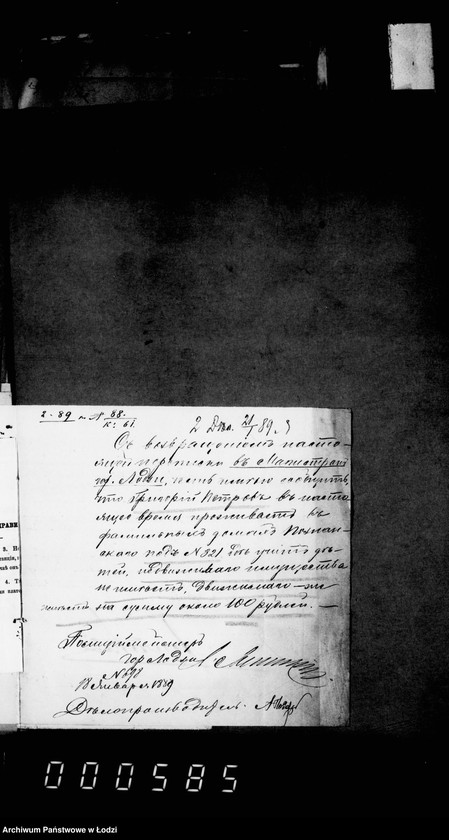 2 - 89 № 68.
к: 61.
2 Дѣл. 21/I 89.
Съ возвращеніемъ насто-
ящей переписки въ Магистратъ
гор. Лодзи, честь имѣю сообщить,
что Григорій Петровъ въ насто
ящее время проживаетъ въ
фамильныхъ домахъ Познан-
скаго подъ № 321 гдѣ учитъ дѣ-
тей, недвижимаго имущества
не имѣетъ, движимаго – же
имѣетъ на сумму около 100 рублей. —
Полиціймейстеръ
гор. Лодзи
№ 698
18 Января 1889
Дѣлопроизводитель
ПРАВИ
3.
4.
000585
Archiwum Państwowe w Łodzi